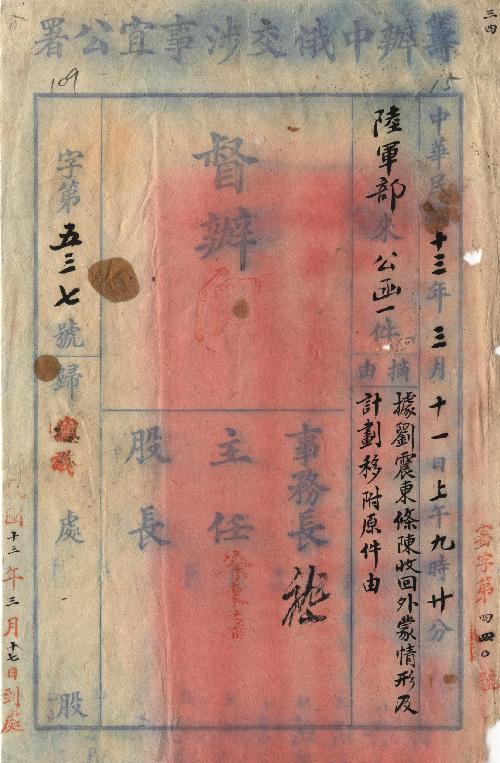 三四
籌辦中俄交涉事宜公署
15
109
中華民國十三年三月十一日上午九時廿分
陸軍部來公函一件
摘由
據劉震東條陳收回外蒙情形及
計劃移附原件由
督辦
事務長
主任
股長
字第五三七號歸
處
股
寒字第四四〇號
民國十三年三月十七日到處